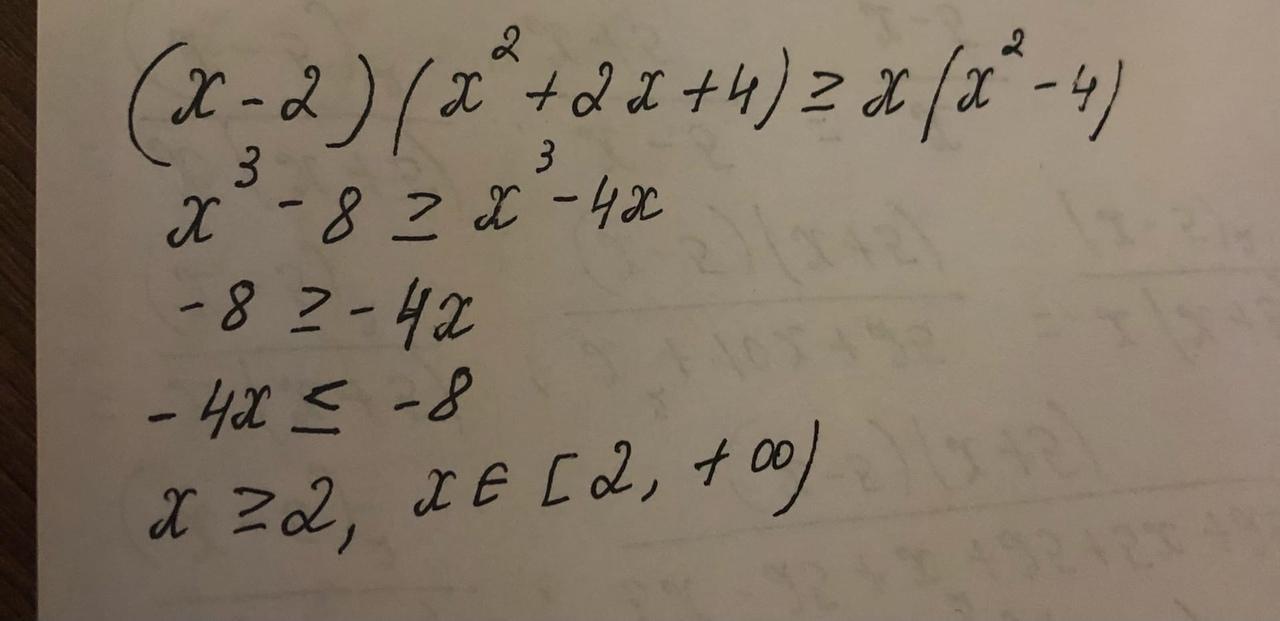 (x-2)(x²+2x+4)≥x(x²-4)
x³-8≥x³-4x
-8≥-4x
-4x≤-8
x≥2, x∈[2, +∞)